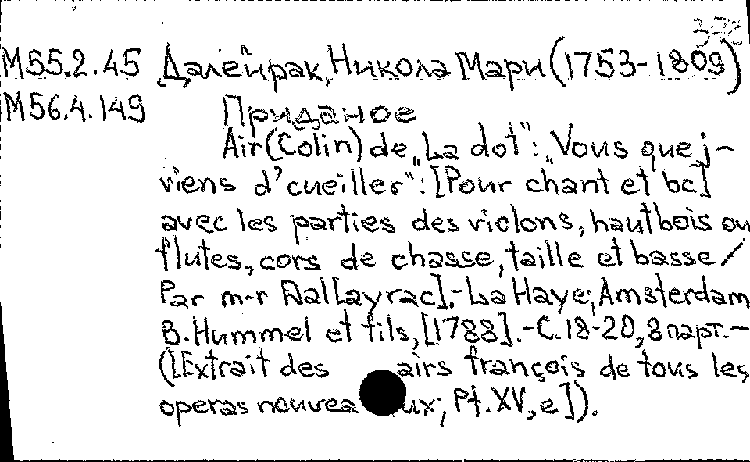 M55.2.45 Далейрак, Никола Мари (1753-1809)
M56.4.149 Приданое
Air (Colin) de „La dot": „Vous que j-
viens d'cueiller": [Pour chant et bc]
avec les parties des violons, hautbois ou
flutes, cors de chasse, taille et basse /
Par m-r Dal[ayrac].-La Haye; Amsterdam
B. Hummel et fils, [1788].-C.18-20, 8 парт.-
([Extrait des airs françois de tous les
operas nouveaux; Pt. XV, e]).